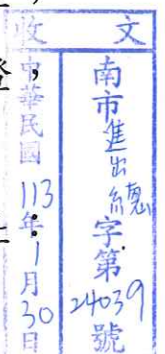 收文
南市進出總字第24039號
中華民國113年1月30日